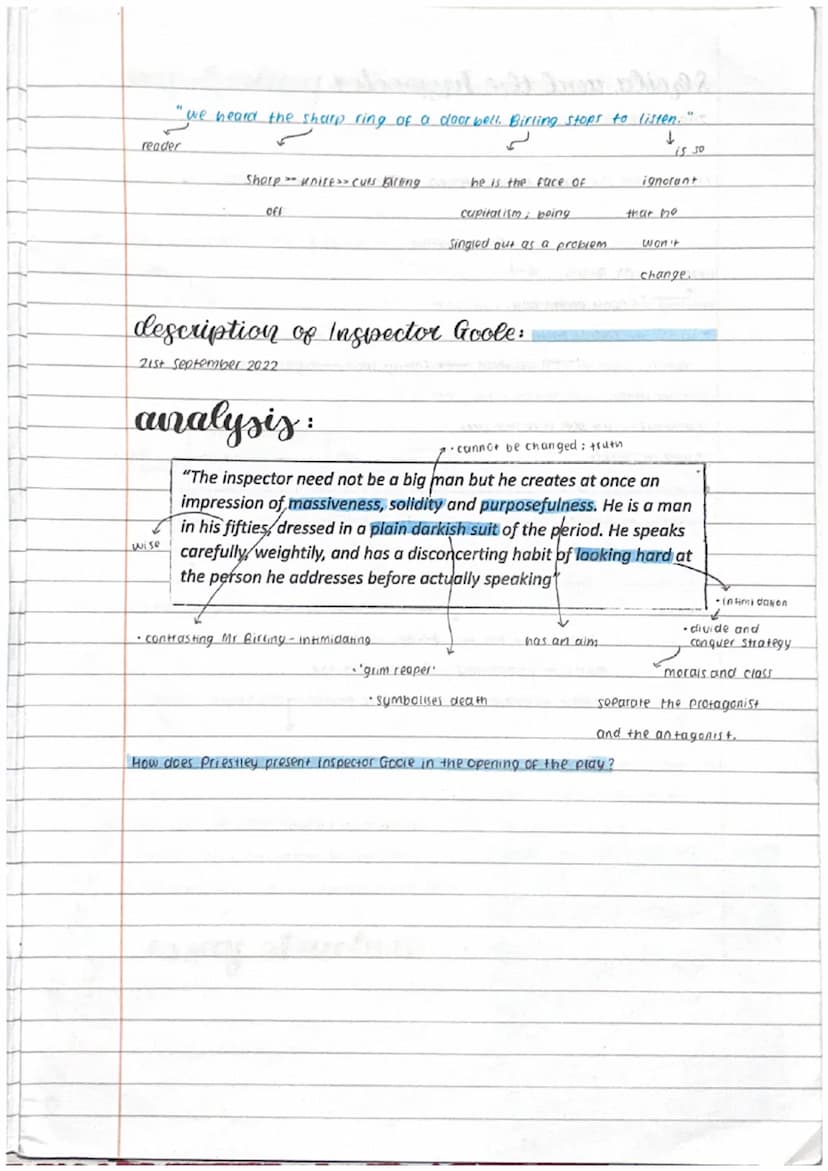 "we heard the sharp ring of a doorbell. Birling stops to listen."
reader
is so
sharp >> knife >> cuts Birling
he is the face of
ignorant
off
capitalism; being
that he
singled out as a problem
won't
change.
description of Inspector Goole:
21st September 2022
analysis:
• cannot be changed; truth
"The inspector need not be a big man but he creates at once an
impression of massiveness, solidity and purposefulness. He is a man
in his fifties, dressed in a plain darkish suit of the period. He speaks
wise
carefully, weightily, and has a disconcerting habit of looking hard at
the person he addresses before actually speaking"
• intimidation
• divide and
• contrasting Mr Birling - intimidating
has an aim
conquer strategy
• 'grim reaper'
morals and class
• symbolises death
separate the protagonist
and the antagonist.
How does Priestley present Inspector Goole in the opening of the play?